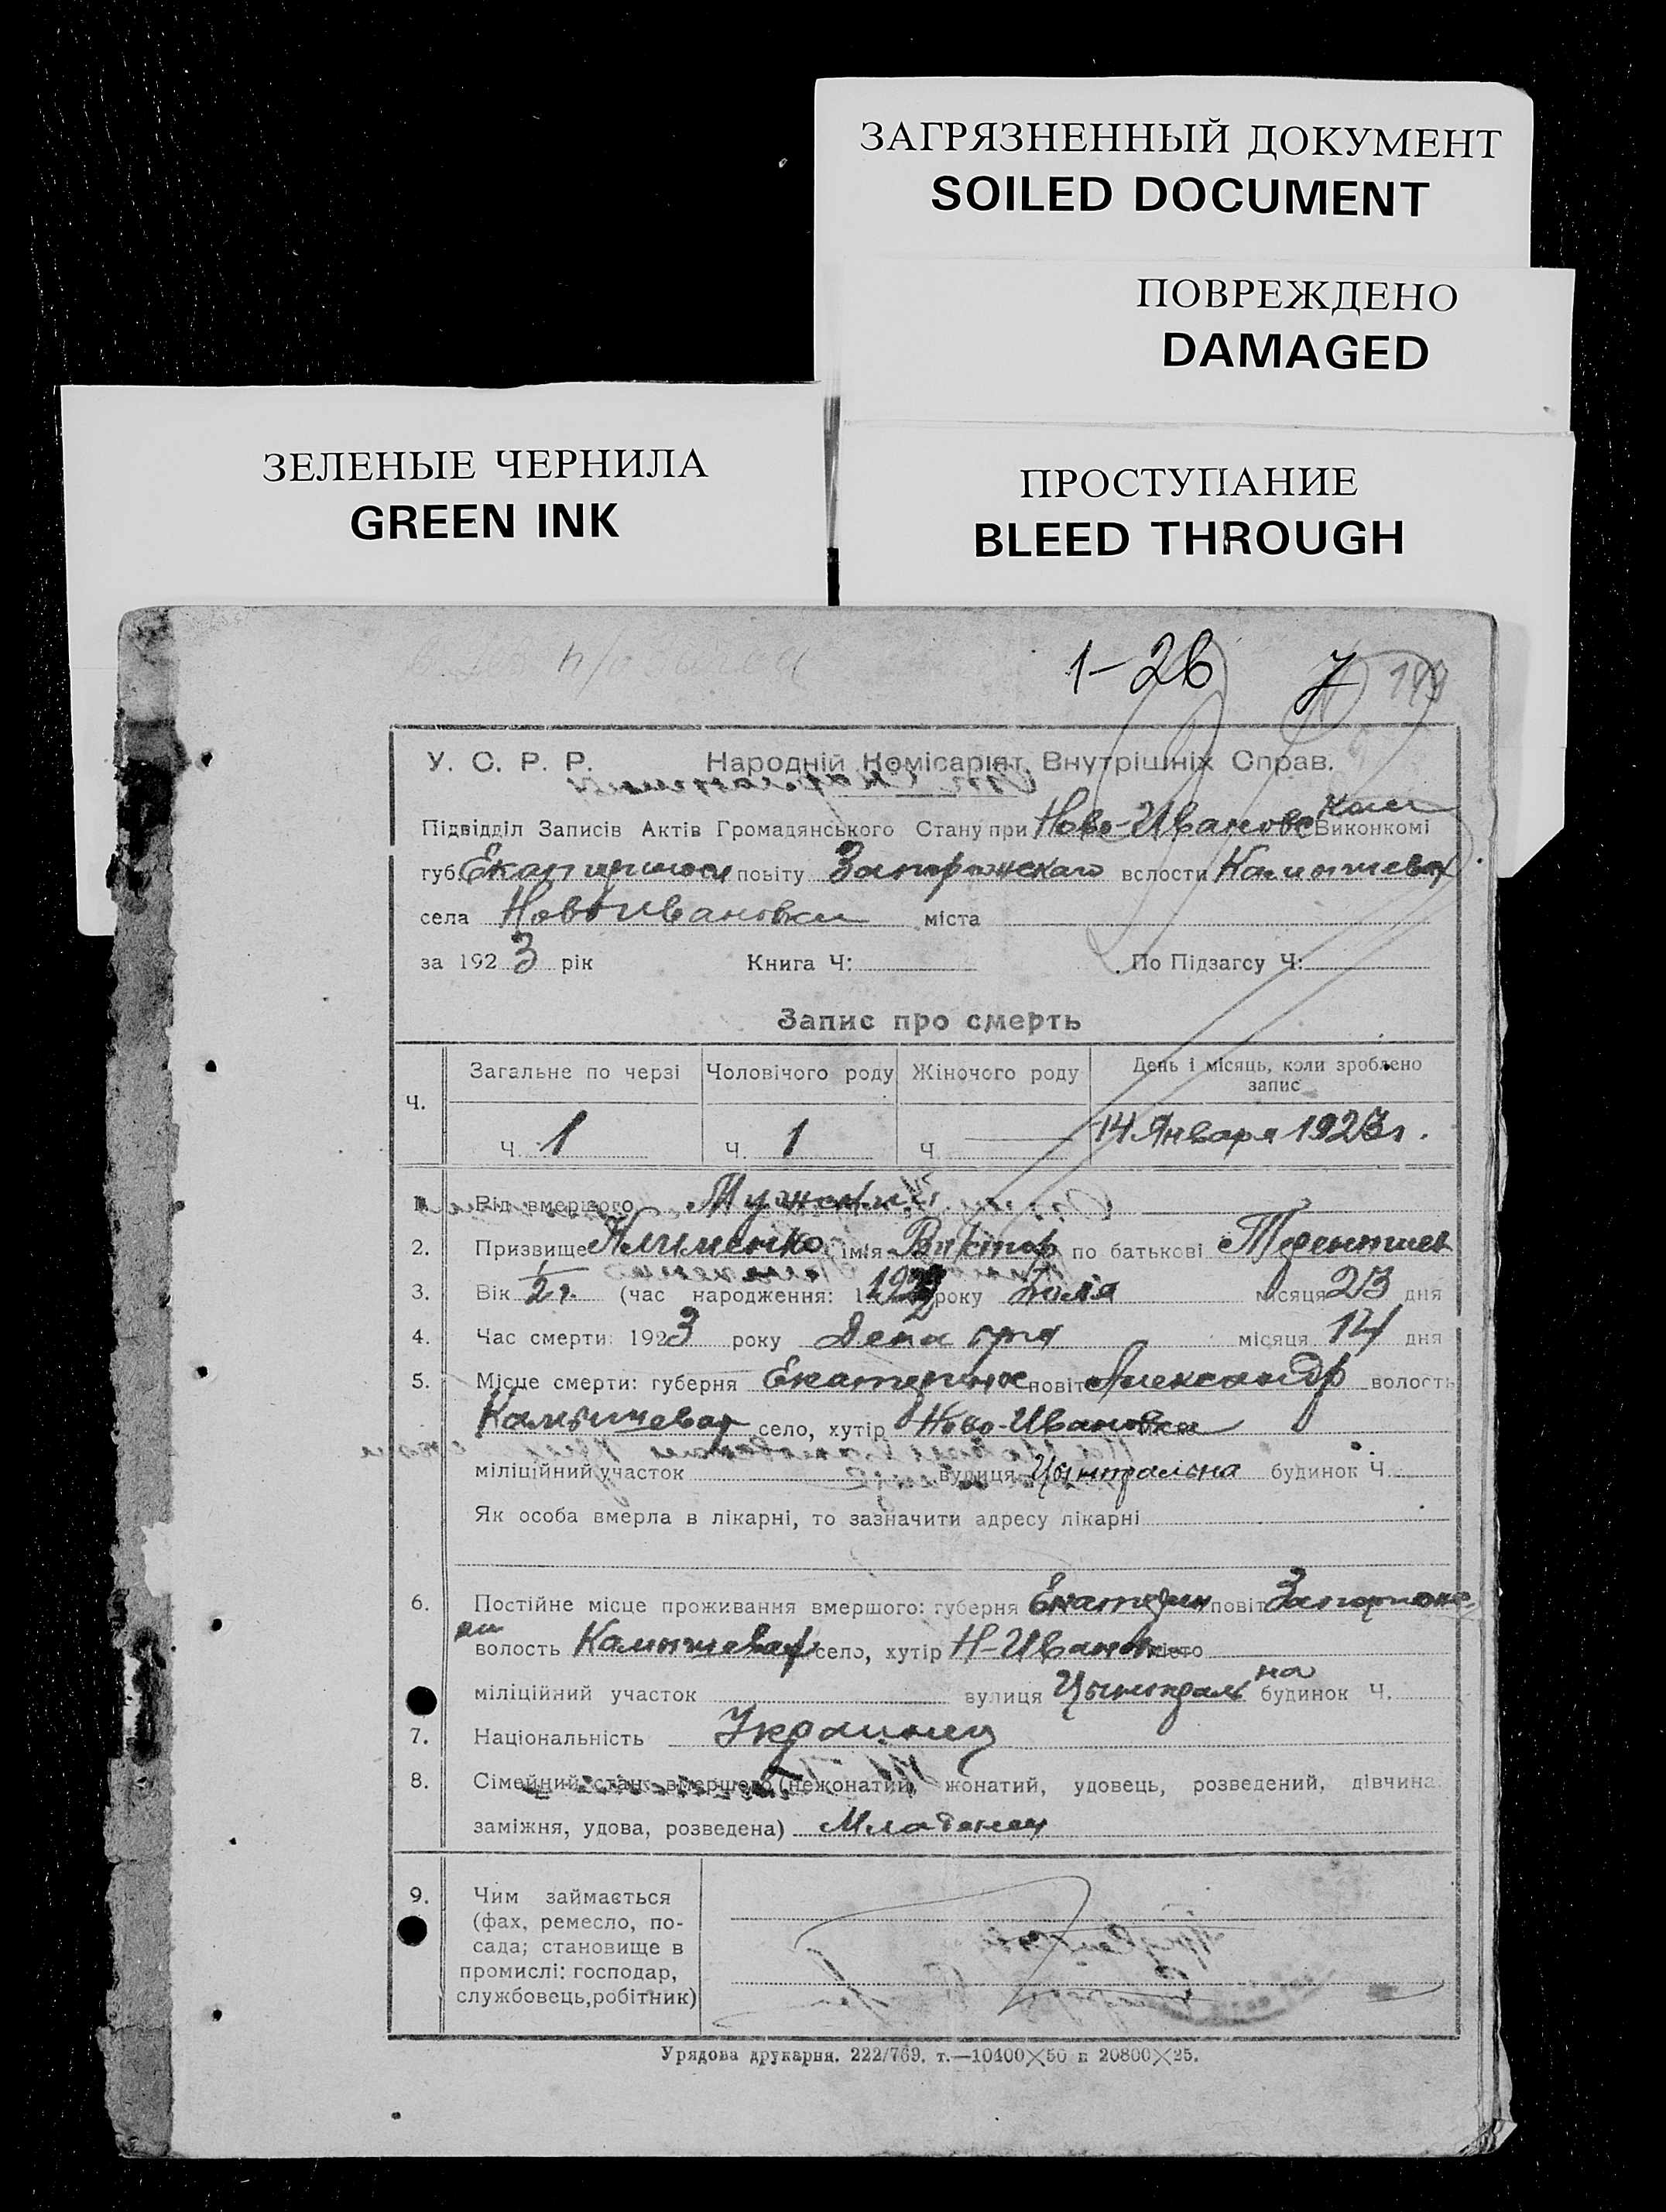 ЗАГРЯЗНЕННЫЙ ДОКУМЕНТ
SOILED DOCUMENT
ПОВРЕЖДЕНО
DAMAGED
ЗЕЛЕНЫЕ ЧЕРНИЛА
GREEN INK
ПРОСТУПАНИЕ
BLEED THROUGH
1-26 7
У. С. Р. Р. Народній Комісаріят Внутрішніх Справ.
Підвідділ Записів Актів Громадянського Стану при Ново-Ивановском Виконкомі
губ. Екатеринос повіту Запорожскаго вслости Камышеват
села Новоивановки міста
за 1923 рік Книга Ч: По Підзагсу Ч:
Запис про смерть
Ч. Загальне по черзі Чоловічого роду Жіночого роду День і місяць, коли зроблено запис
Ч. 1 Ч. 1 Ч. 14 Января 1923 г.
1. Від вмершого Мужский
2. Призвище Клименко імія Виктор по батькові Терентиев
3. Вік 1/2 г. (час народження: 1922 року Июля місяця 23 дня
4. Час смерти: 1923 року Декабря місяця 14 дня
5. Місце смерти: губерня Екатеринос повіт Александр волость
Камышеват село, хутір Ново-Ивановка
міліційний участок вулиця Цынтральна будинок Ч.
Як особа вмерла в лікарні, то зазначити адресу лікарні
6. Постійне місце проживання вмершого: губерня Екатерин повіт Запорожс
кий волость Камышеват село, хутір Н-Ивановка місто
міліційний участок вулиця Цынтральна будинок Ч.
7. Національність Украинец
8. Сімейний стан вмершого (нежонатий, жонатий, удовець, розведений, дівчина.
заміжня, удова, розведена) Младенец
9. Чим займається
(фах, ремесло, по-
сада; становище в
промислі: господар,
службовець, робітник)
Урядова друкарня. 222/769. т.—10400×50 п 20800×25.